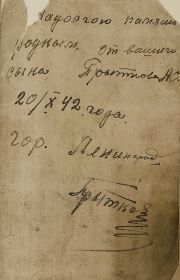 На долгою память
родным от вашего
сына Прыткова А.С.
20/X 42 года
гор. Ленинград
Прытков